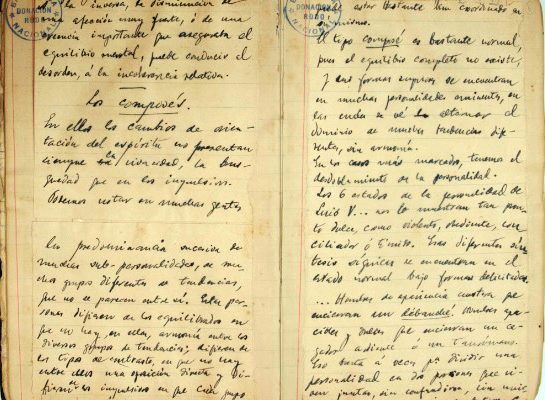 inversa, la disminución de
una afección muy fuerte, ó de una
creencia importante que aseguraba el
equilibrio mental, puede conducir al
desorden, á la incoherencia relativa.
Los composés.
En ellos los cambios de orien-
tación del espíritu no presentan
siempre la viveza, la brus-
quedad que en los impulsivos.
Podemos notar en muchas gentes
la predominancia sucesiva de
muchas sub-personalidades, de mu-
chos grupos diferentes de tendencias,
que no se parecen entre sí. Estas per-
sonas difieren de los equilibrados en
que no hay en ellas, armonía entre los
diversos grupos de tendencias; difieren de
los tipos de contraste, en que no hay
entre ellos una oposición directa y di-
fieren de los impulsivos en que cada grupo
DONACION
RODO
NACIONAL
estar bastante bien coordinado en
sí mismo.
El tipo composé es bastante normal,
pues el equilibrio completo no existe,
y sus formas se encuentran
en muchas personalidades eminentes, en
las cuales se vé alternar el
dominio de muchas tendencias dife-
rentes, sin armonía.
En los casos más marcados, tenemos el
desdoblamiento de la personalidad.
Los 6 estados de la personalidad de
Luis V... nos lo muestran tan pron-
to dulce, como violento, obediente, con-
ciliador ó tímido. Esas diferentes sín-
tesis psíquicas se encuentran en el
estado normal bajo formas delicadas.
... Hombres de apariencia austera que
encierran un débauché. Hombres apa-
cibles, dulces que encierran un ce-
gador, ardiente ó un fantasioso.
Eso basta á veces pª dividir una
personalidad en dos personas que vi-
ven juntas, sin confundirse, sin unirse